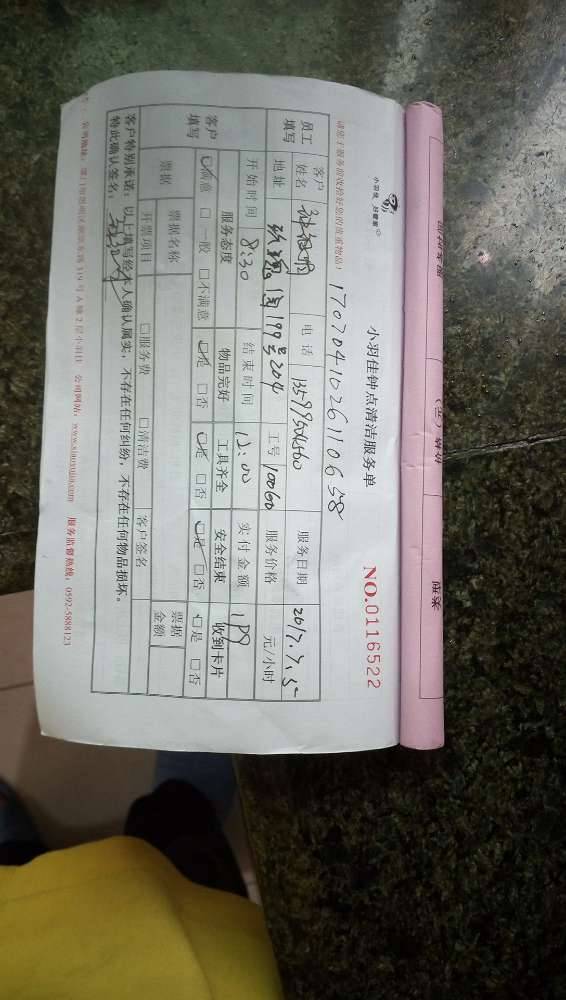 小羽佳 好管家
小羽佳钟点清洁服务单
NO.0116522
请您于服务前收检好您的贵重物品！
17070410261106 58
员工填写 客户姓名 电话 13599504560 服务日期 2017.7.5
地址 玫瑰园199号204 工号 10060 服务价格 元/小时
开始时间 8:30 结束时间 12:00 实付金额
客户填写 服务态度 物品完好 工具齐全 安全结束 收到卡片
☑满意 □一般 □不满意 ☑是 □否 ☑是 □否 ☑是 □否 ☑是 □否
票据 票据名称 □服务费 □清洁费 客户签名 票据金额
开票项目
客户特别承诺：以上填写经本人确认属实，不存在任何纠纷，不存在任何物品损坏。
特此确认签名：
公司网站：www.xiaoyujia.com 服务监督热线：0592-5888123